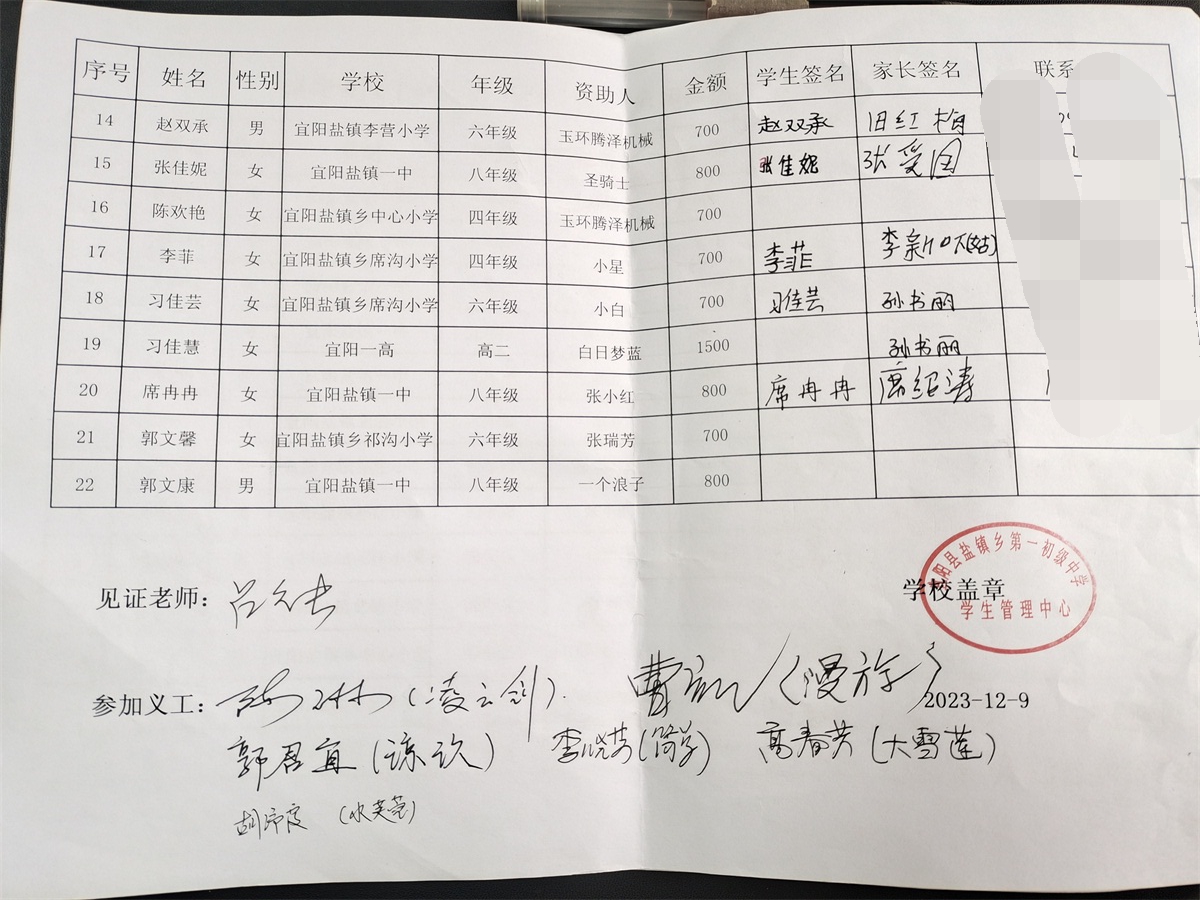 序号 姓名 性别 学校 年级 资助人 金额 学生签名 家长签名 联系
14 赵双承 男 宜阳盐镇李营小学 六年级 玉环腾泽机械 700 赵双承 旧红梅
15 张佳妮 女 宜阳盐镇一中 八年级 圣骑士 800 张佳妮
16 陈欢艳 女 宜阳盐镇乡中心小学 四年级 玉环腾泽机械 700
17 李菲 女 宜阳盐镇乡席沟小学 四年级 小星 700 李菲
18 习佳芸 女 宜阳盐镇乡席沟小学 六年级 小白 700 习佳芸 孙书丽
19 习佳慧 女 宜阳一高 高二 白日梦蓝 1500 孙书丽
20 席冉冉 女 宜阳盐镇一中 八年级 张小红 800 席冉冉 席绍涛
21 郭文馨 女 宜阳盐镇乡祁沟小学 六年级 张瑞芳 700
22 郭文康 男 宜阳盐镇一中 八年级 一个浪子 800
宜阳县盐镇乡第一初级中学
见证老师： 学校盖章
学生管理中心
参加义工： (凌云剑) (漫游) 2023-12-9
郭君宜 李晓芳 高春芳 (大雪莲)
(水芙蓉)